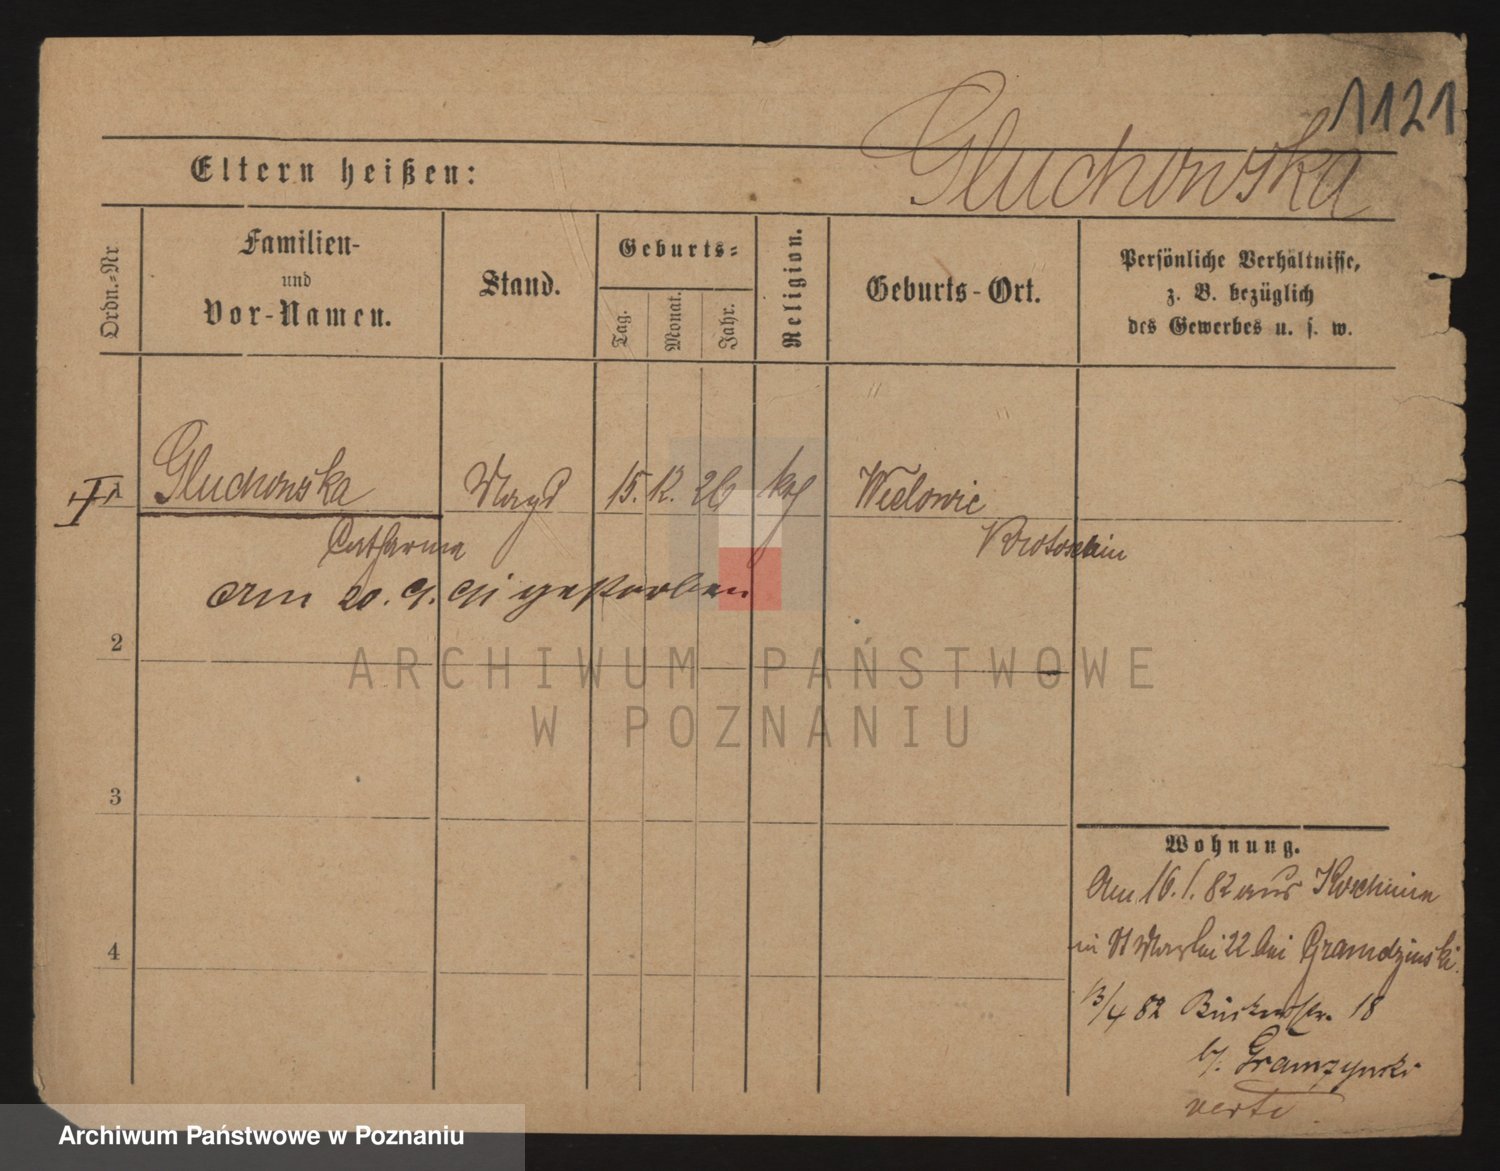 1121
Gluchowska
Eltern heißen:
Ordn.-Nr
Familien-
und
Vor-Namen.
Stand.
Geburts-
Tag.
Monat.
Jahr.
Religion.
Geburts-Ort.
Persönliche Verhältnisse,
z. B. bezüglich
des Gewerbes u. s. w.
Gluchowska Magd 15. 12. 26 kth
Catharina Krotoschin
am 20. 9. 91 gestorben
2
ARCHIWUM PAŃSTWOWE
W POZNANIU
3
Wohnung.
Am 16. 1. 82 aus Koschmin
in St Martin 22 bei Gramdzinski.
4
13/4 82 18
b/. Gramzynski
verte
Archiwum Państwowe w Poznaniu